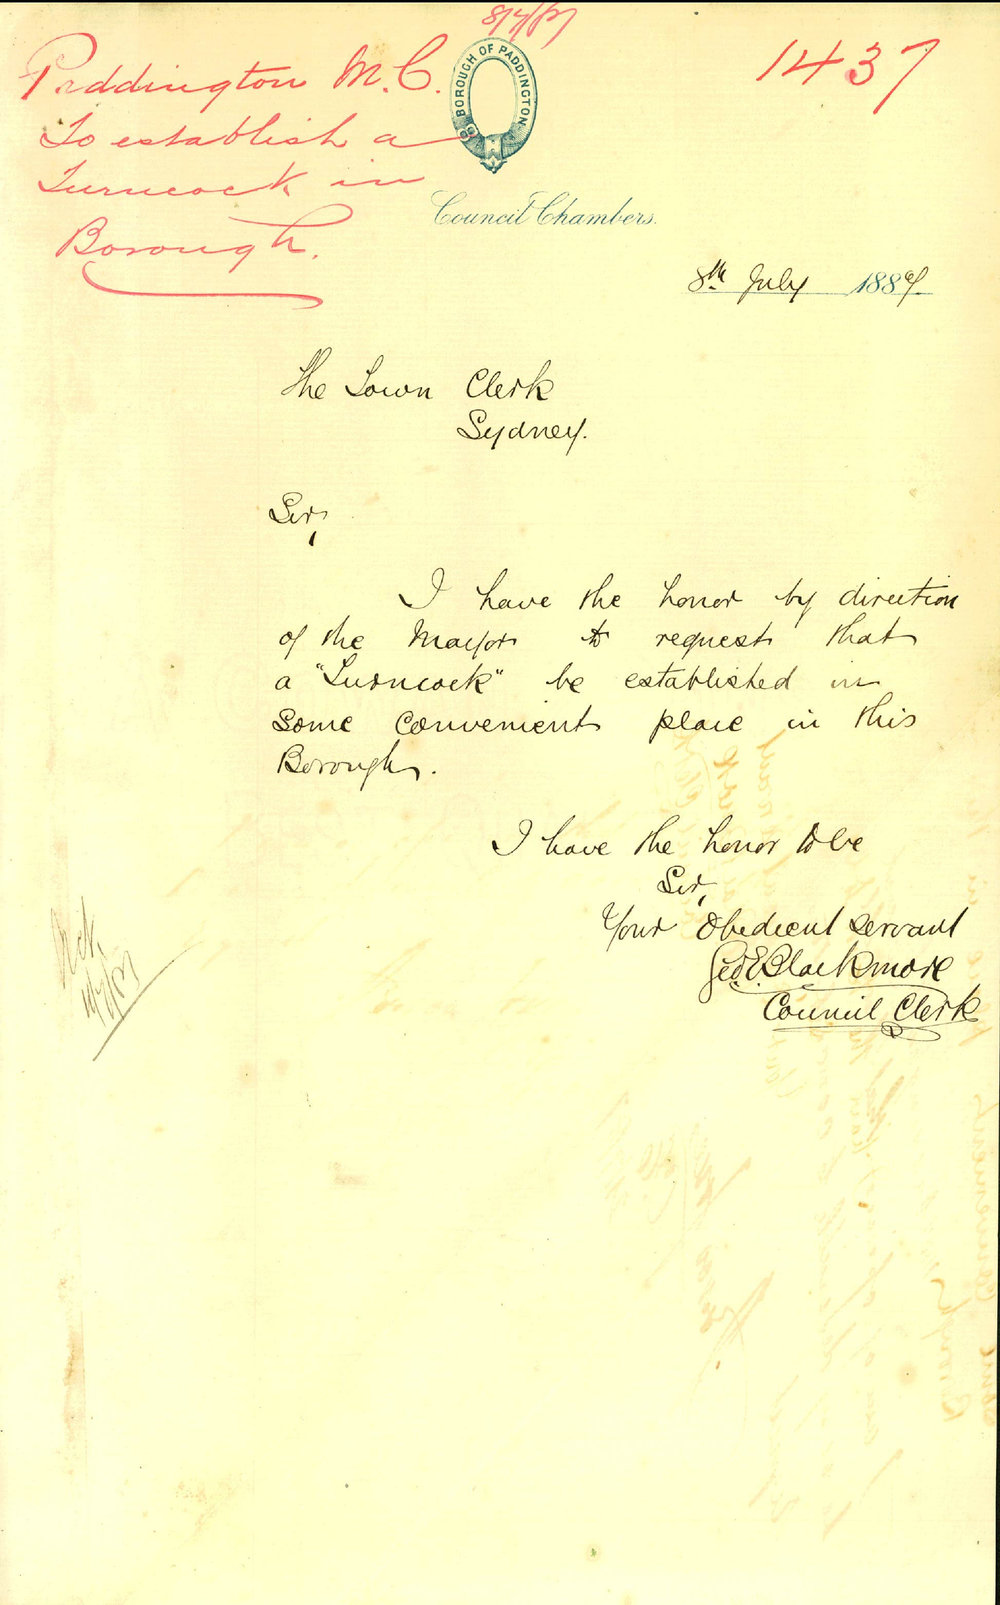 8/7/87
Paddington M.C.
To establish a
Turncock in
Borough.
1437
BOROUGH OF PADDINGTON
Council Chambers.
8th July 1887
The Town Clerk
Sydney.
Sir,
I have the honor by direction
of the Mayor to request that
a "Turncock" be established in
some convenient place in this
Borough.
I have the honor to be
Sir,
Your Obedient Servant
Geo. E. Blackmore
Council Clerk